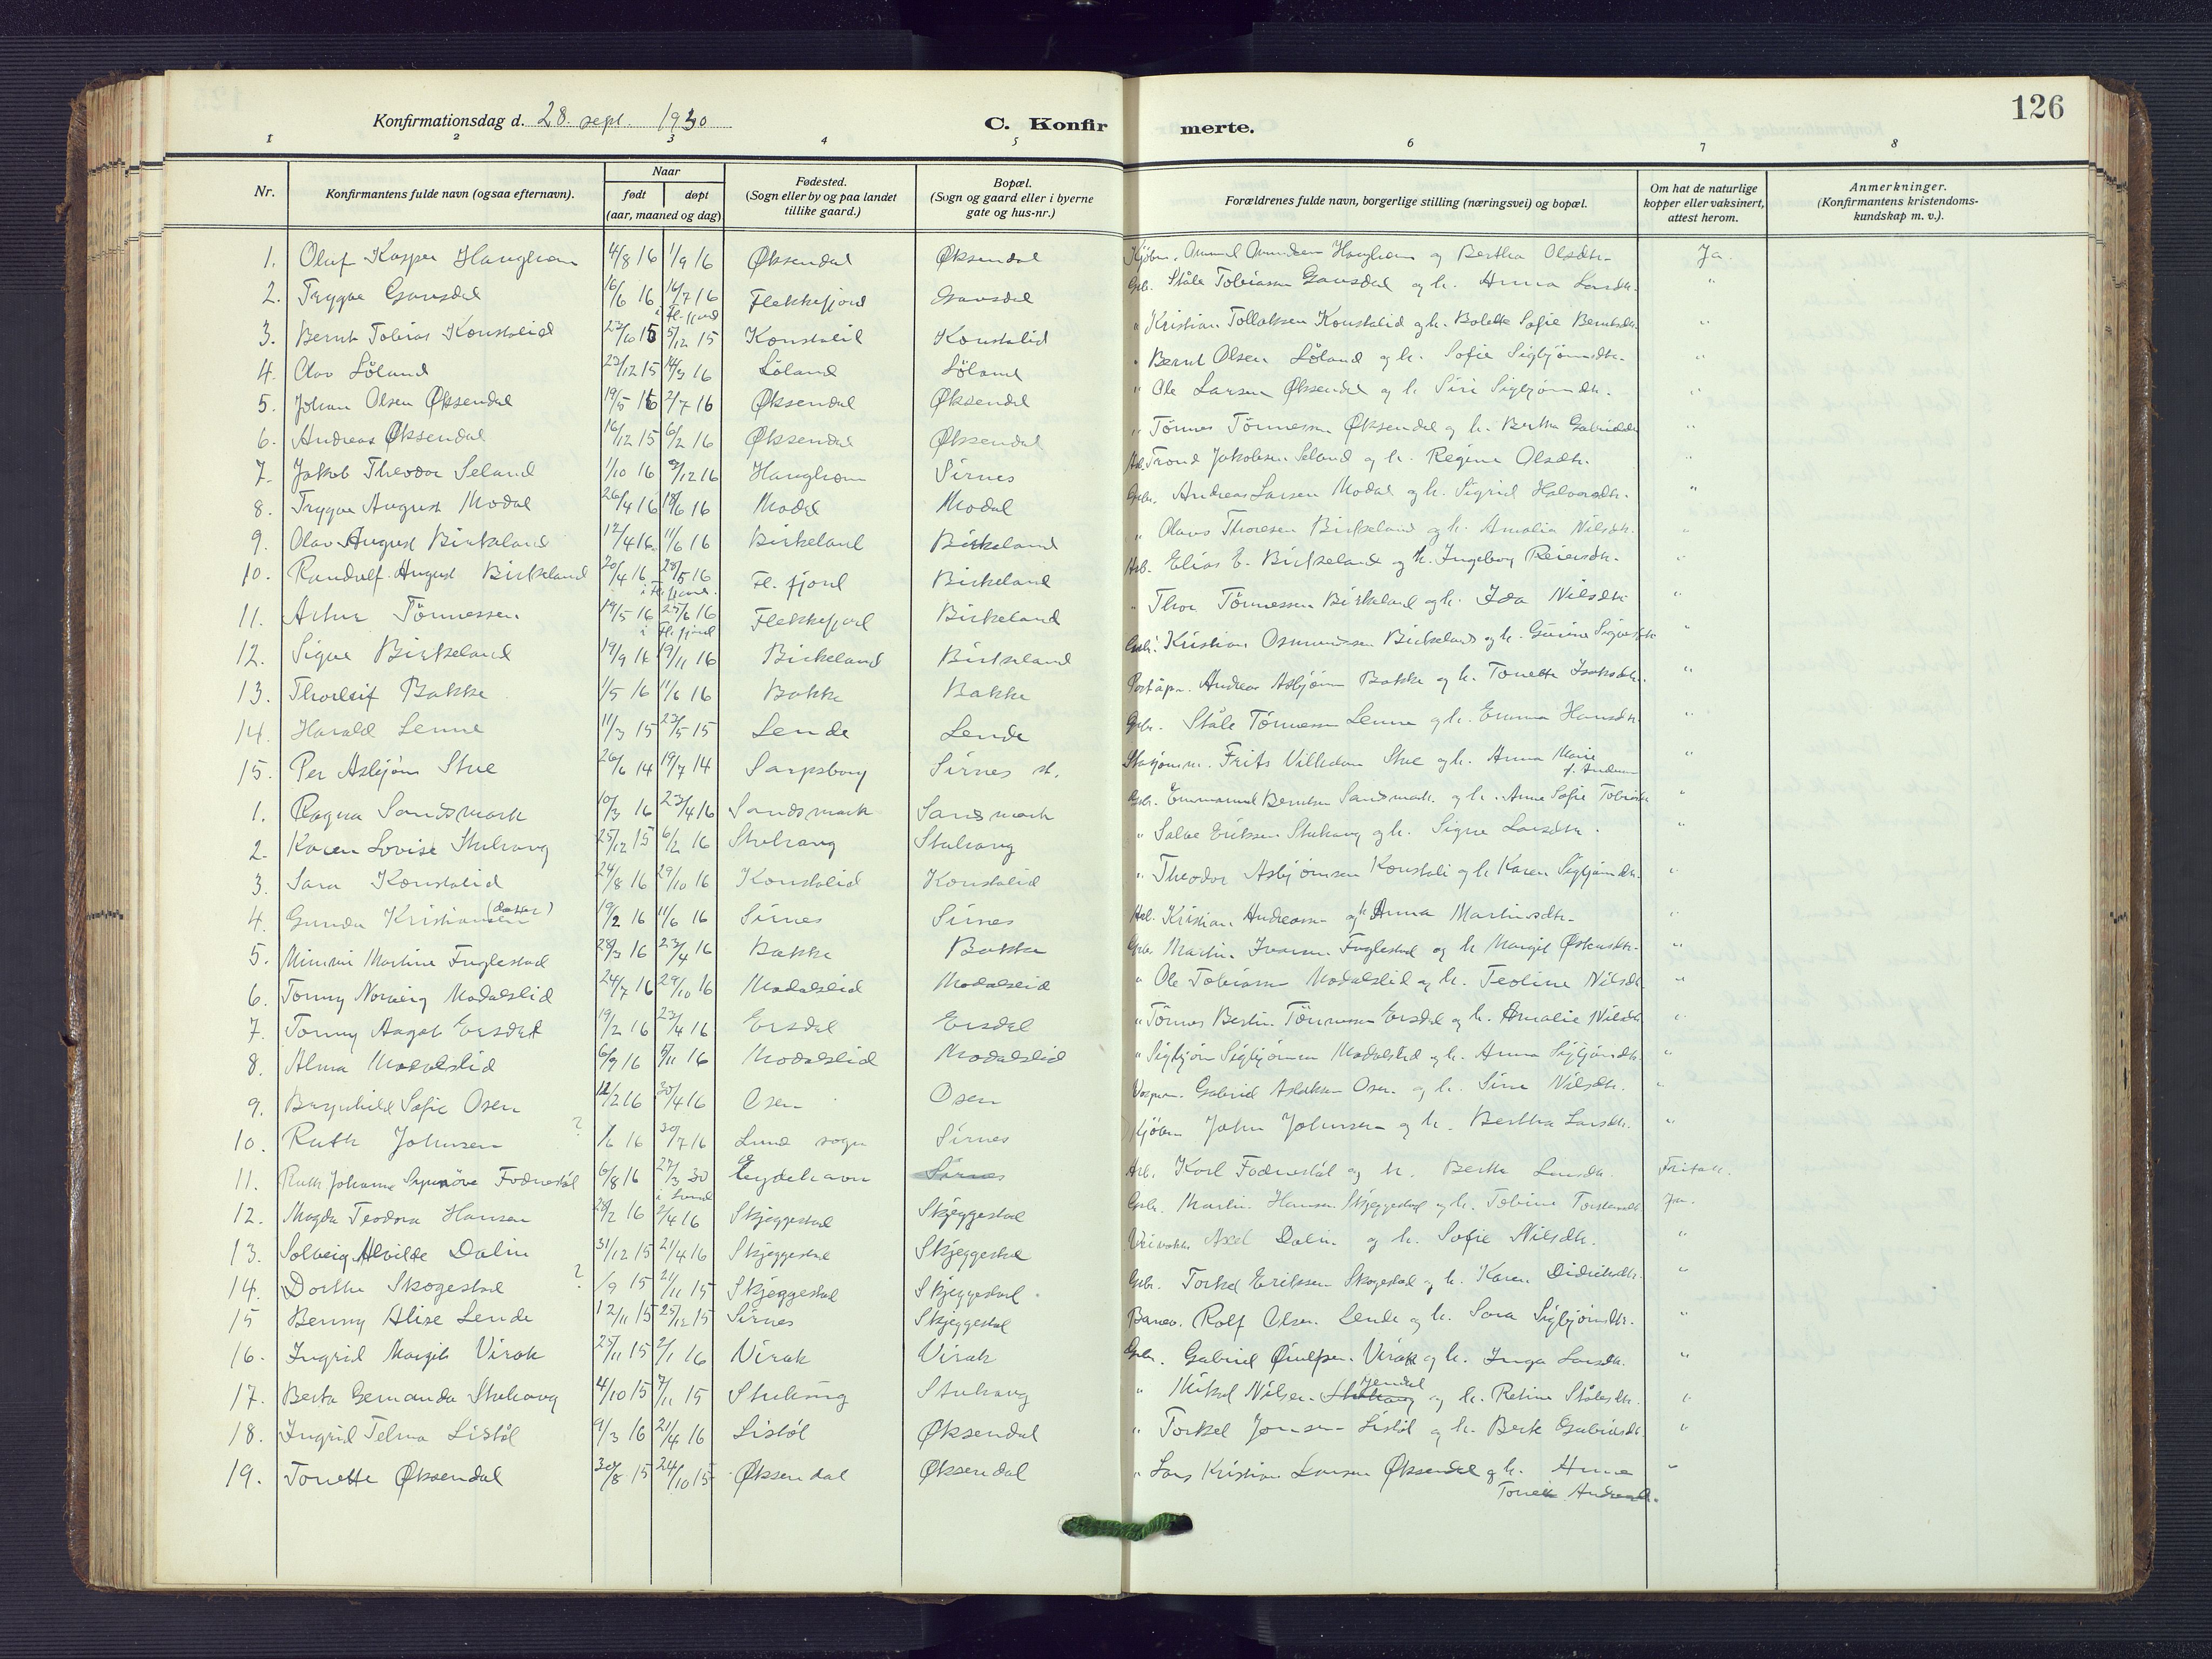 126
Konfirmationsdag d. 28. sept. 1930
C. Konfirmerte.
1 2 3 4 5 6 7 8
Nr. Konfirmantens fulde navn (ogsaa efternavn). Naar født døpt (aar, maaned og dag) Fødested. (Sogn eller by og paa landet tillike gaard.) Bopæl. (Sogn og gaard eller i byerne gate og hus-nr.) Forældrenes fulde navn, borgerlige stilling (næringsvei) og bopæl. Om hat de naturlige kopper eller vaksinert, attest herom. Anmerkninger. (Konfirmantens kristendoms-kundskap m. v.).
1. Oluf Kasper Haughom 4/8 16 1/9 16 Øksendal Øksendal Haughom og Bertha Olsdtr. Ja.
2. Trygve Gausdal 16/6 16 16/7 16 i Fl.fjord Flekkefjord Gausdal Gbr. Ståle Tobiassen Gausdal og h. Anna Larsdtr. "
3. Bernt Tobias Konstalid 23/10 15 5/12 15 Konstalid Konstalid " Kristian Tollaksen Konstalid og h. Bolette Sofie Berntsdtr. "
4. Olav Löland 23/12 15 14/3 16 Löland Löland " Bernt Olsen Löland og h. Sofie Sigbjörnsdtr. "
5. Johan Olsen Øksendal 19/5 16 2/7 16 Øksendal Øksendal " Ole Larsen Øksendal og h. Siri Sigbjörnsdtr. "
6. Andreas Øksendal 16/12 15 6/2 16 Øksendal Øksendal " Tönnes Tönnessen Øksendal og h. Bertha Gabrielsdtr "
7. Jakob Theodor Seland 1/10 16 3/12 16 Haughom Sirnes Arb. Trond Jakobsen Seland og h. Regine Olsdtr. "
8. Trygve August Modal 26/4 16 18/6 16 Modal Modal Gbr. Andreas Larsen Modal og h. Sigrid Halvorsdtr. "
9. Olav August Birkeland 12/4 16 11/6 16 Birkeland Birkeland " Olaus Thoresen Birkeland og h. Amalie Nilsdtr. "
10. Randulf August Birkeland 20/4 16 28/5 16 i Fl.fjord. Fl.fjord Birkeland Arb. Elias E. Birkeland og h. Ingeborg Reiersdtr. "
11. Artur Tönnessen 19/5 16 25/6 16 i Fl.fjord Flekkefjord Birkeland " Thor Tönnessen Birkeland og h. Ida Nilsdtr "
12. Sigve Birkeland 19/9 16 19/11 16 Birkeland Birkeland Gbr. Kristian Osmundsen Birkeland og h. Gurine "
13. Thorleif Bakke 1/5 16 11/6 16 Bakke Bakke Poståpn. Andreas Asbjörn Bakke og h. Tonette Isaksdtr. "
14. Harald Lenne 11/3 15 23/5 15 Lende Lende Gbr. Ståle Tönnessen Lenne og h. Emma Hansdtr "
15. Per Asbjörn Stue 26/6 14 19/7 14 Sarpsborg Sirnes st. Frits Vilhelm Stue og h. Anna Marie f. Andersen "
1. Ragna Sandsmark 10/3 16 23/4 16 Sandsmark Sandsmark Gbr. Emmanuel Berntsen Sandsmark og h. Anne Sofie "
2. Karen Lovise Stuhaug 25/12 15 6/2 16 Stuhaug Stuhaug " Salve Eriksen Stuhaug og h. Signe Larsdtr. "
3. Sara Konstalid 24/8 16 29/10 16 Konstalid Konstalid " Theodor Asbjörnsen Konstali og h Karen Sigbjörnsdtr. "
4. Gunda Kristiansen (datter) 19/2 16 11/6 16 Sirnes Sirnes Arb. Kristian Andreassen og h Anna Martinsdtr. "
5. Minnie Martine Fuglestad 28/3 16 23/4 16 Bakke Bakke Gbr. Martin Iversen Fuglestad og h Margit "
6. Tonny Norveig Modalslid 24/7 16 29/10 16 Modalslid Modalslid " Ole Tobiassen Modalslid og h. Teoline Nilsdtr "
7. Tonny Aagot Ersdal 19/2 16 23/4 16 Ersdal Ersdal " Tönnes Bertin Tönnessen Ersdal og h. Amalie Nilsdtr "
8. Alma Modalslid 6/9 16 5/11 16 Modalslid Modalslid " Sigbjörn Sigbjörnsen Modalslid og h. Anna Sigbjörnsdtr. "
9. Bergnhild Sofie Osen 12/2 16 30/4 16 Osen Osen Gabriel Aslaksen Osen og h. Sine Nilsdtr. "
10. Ruth Johnsen ? /6 16 30/7 16 Lund sogn Sirnes Kjöbm John Johnsen og h. Bertha Larsdtr. "
11. Ruth Johanne Synnöve Fodnestöl 6/8 16 27/3 30 i Lund Eydehavn Sirnes Arb. Karl Fodnestöl og h. Berthe Larsdtr. Fritatt.
12. Magda Teodora Hansen 28/2 16 2/4 16 Skjeggestad Skjeggestad Gbr. Martin Hansen Skjeggestad og h. Tobine Ja.
13. Solveig Alvilde Dalin 31/12 15 21/4 16 Skjeggestad Skjeggestad Veivokter Axel Dalin og h. Sofie Nilsdtr. "
14. Dorthe Skogestad ? /9 15 21/11 15 Skjeggestad Skjeggestad. Gbr. Torkel Eriksen Skogestad og h. Karen Didriksdtr. "
15 Benny Alise Lende 12/11 15 25/12 15 Sirnes Skjeggestad Banev. Rolf Olsen Lende og h. Sara Sigbjörnsdtr. "
16. Ingrid Margit Virak 25/11 15 2/1 16 Virak Virak Gbr. Gabriel Virak og h. Inga Larsdtr. "
17. Berta Gernanda Stuhaug 4/10 15 7/11 15 Stuhaug Stuhaug " Mikal Nilsen Stuhaug og h. Retine Ståledtr. "
18. Ingrid Telma Listöl 9/3 16 21/4 16 Listöl Øksendal " Torkel Jonsen Listöl og h. Berte Gabrielsdtr. "
19. Tonette Øksendal 30/8 15 24/10 15 Øksendal Øksendal " Lars Kristian Larsen Øksendal og h. Anna Tonette Andreasdtr. "